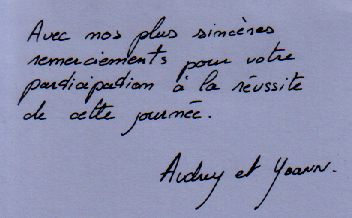 Avec nos plus sincères
remerciements pour votre
participation à la réussite
de cette journée.
Audrey et Yoann.